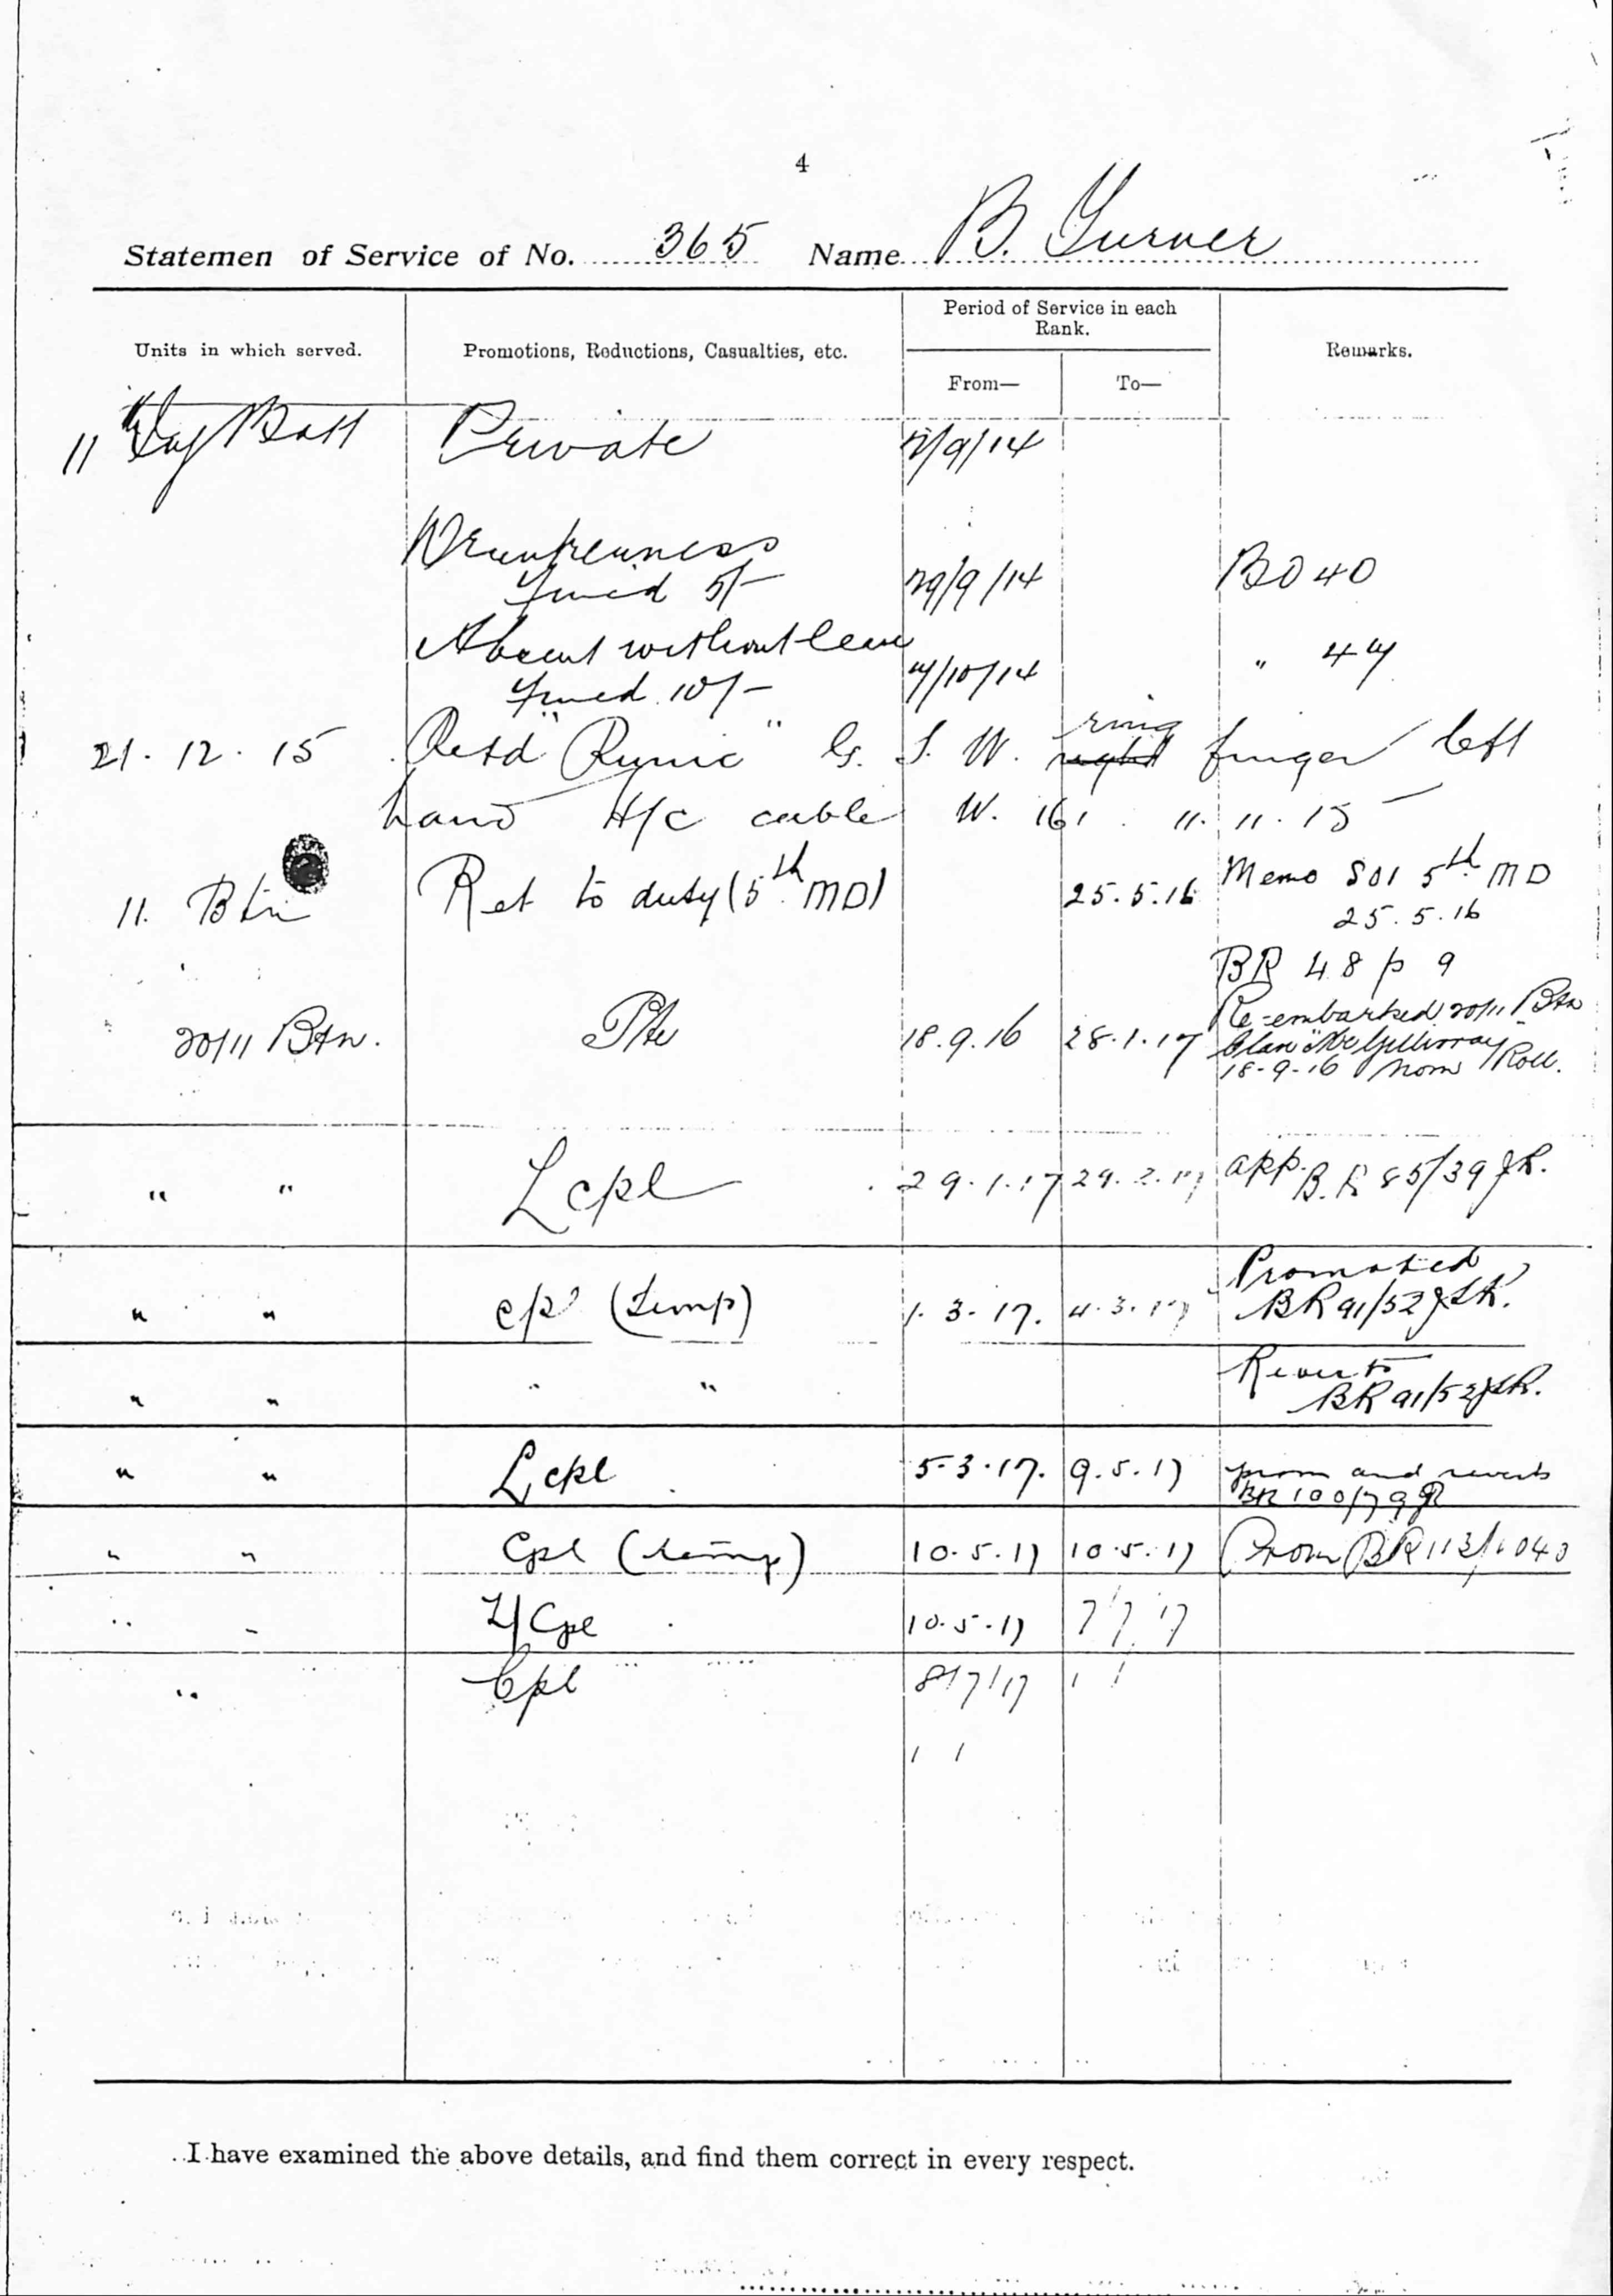 4
Statemen of Service of No. 365 Name B. Turner
Units in which served. Promotions, Reductions, Casualties, etc. Period of Service in each Rank. Remarks.
From— To—
11 Batt Private /9/14
Drunkenness
fined 5/- 29/9/14 BO 40
Absent without leave
fined 10/- /10/14 " 44
21. 12. 15 Retd "Runic" G. S. W. ring finger left
hand H/c cable W. 161. 11. 11. 15
11. Btn Ret to duty (5th MD) 25.5.16 Memo SO1 5th MD
25.5.16
BR 48 p 9
20/11 Btn. Pte 18.9.16 28.1.17 Re-embarked 20/11 Btn
"Clan McGillivray"
18-9-16 Nom Roll.
" " Lcpl 29.1.17 29.2.17 app. B.R 85/39
" " cpl (temp) 1.3.17. 4.3.17 Promoted
BR 91/52
" " " " Reverts
BR 91/52
" " Lcpl 5-3-17. 9.5.17 prom and reverts
BR 100/79
" " Cpl (temp) 10.5.17 10.5.17 Prom BR 113/1040
" " L/Cpl 10.5.17 7/7/17
" Cpl 8/7/17 / /
/ /
I have examined the above details, and find them correct in every respect.